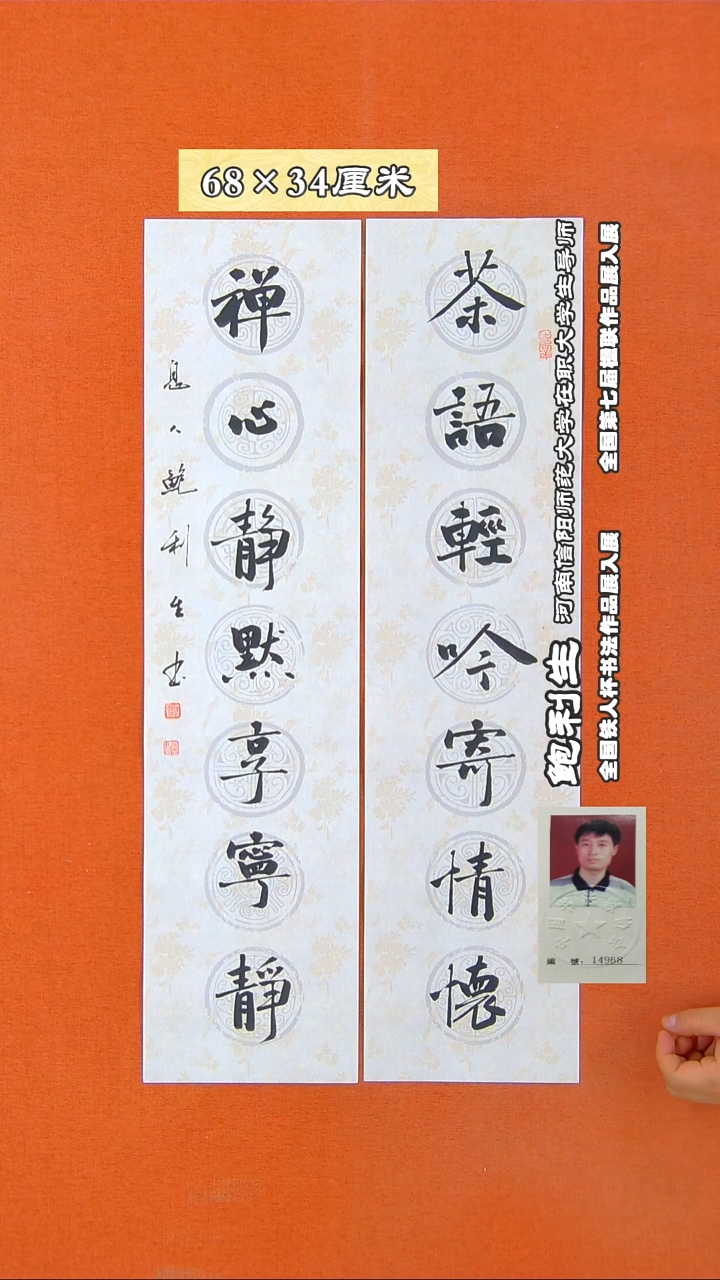 68×34厘米
茶語輕吟寄情懷
禅心静默享寧靜
息人鮑利生书
鲍利生
河南信阳师范大学在职大学生导师
全国第七届楹联作品展入展
全国铁人杯书法作品展入展
編 號：14968